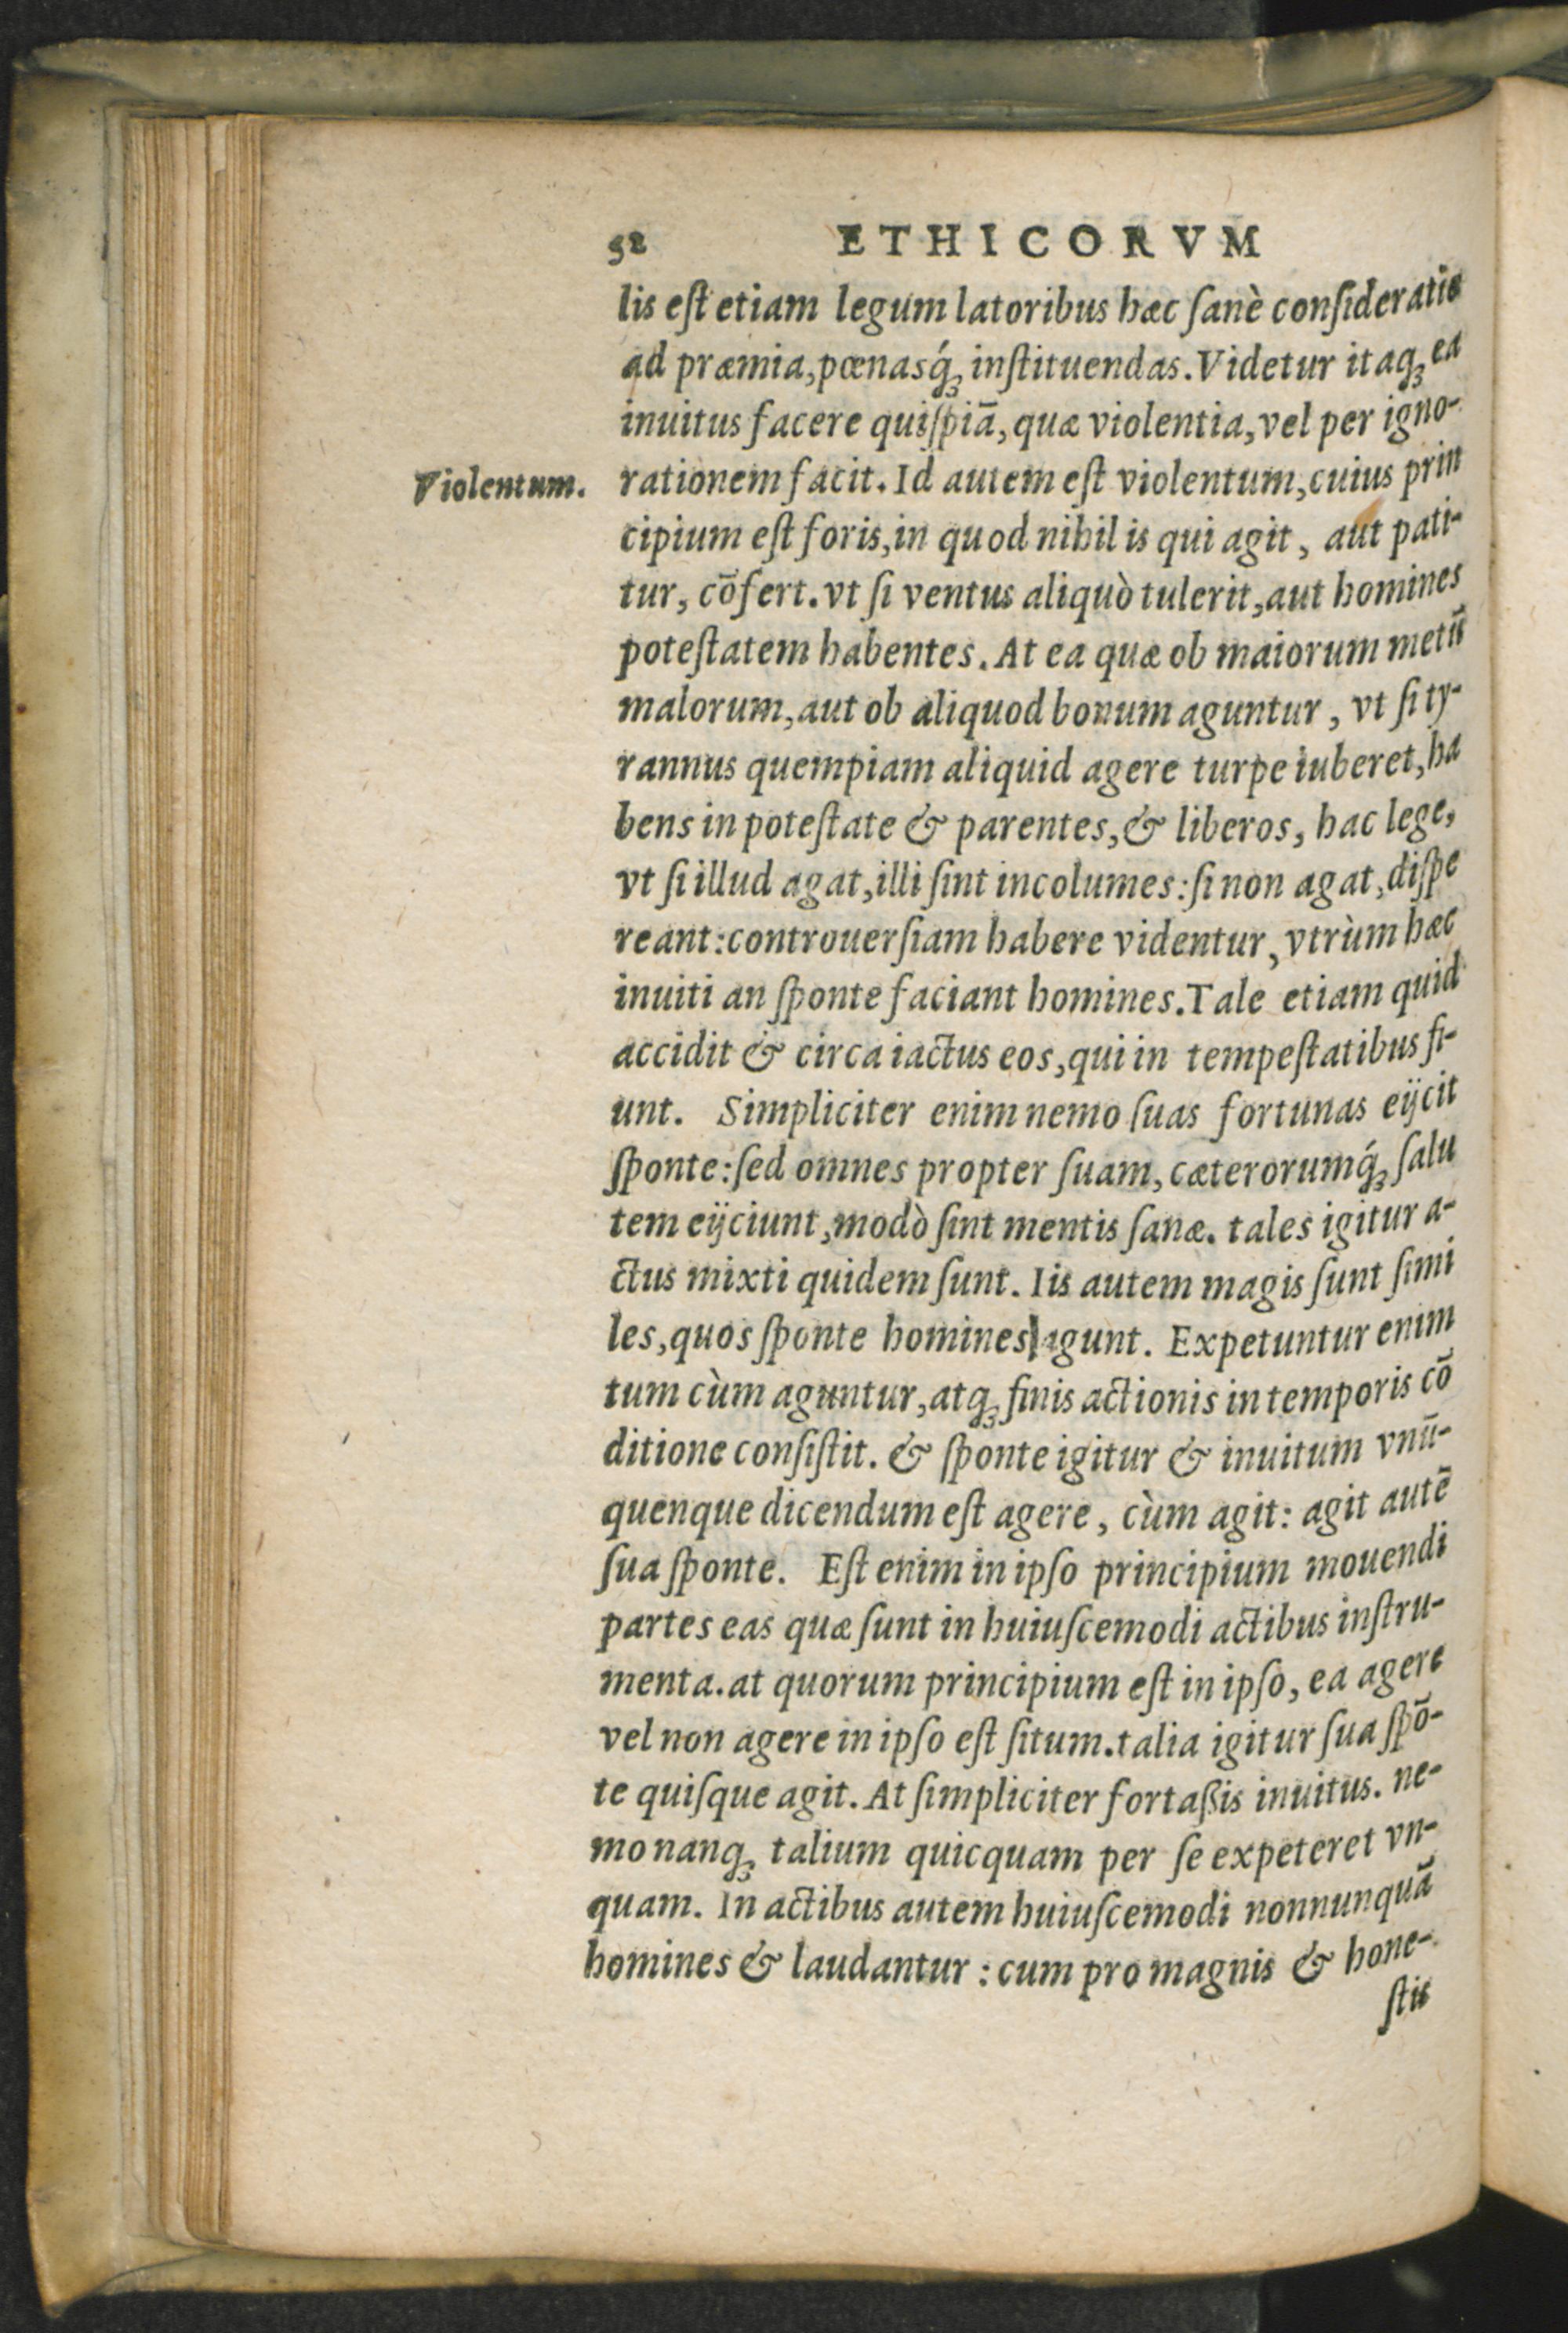 52 ETHICORVM
lis eſt etiam legum latoribus hæc ſanè conſideratio
ad præmia, pœnasq́ꝫ inſtituendas. Videtur itaqꝫ ea
inuitus facere quiſpiā, quæ violentia, vel per igno-
Violentum.
rationem facit. Id autem eſt violentum, cuius prin
cipium eſt foris, in quod nihil is qui agit, aut pati-
tur, cōfert. vt ſi ventus aliquò tulerit, aut homines
poteſtatem habentes. At ea quæ ob maiorum metū
malorum, aut ob aliquod bonum aguntur, vt ſi ty-
rannus quempiam aliquid agere turpe iuberet, ha
bens in poteſtate & parentes, & liberos, hac lege,
vt ſi illud agat, illi ſint incolumes: ſi non agat, diſpe
reant: controuerſiam habere videntur, vtrùm hæc
inuiti an ſponte faciant homines. Tale etiam quid
accidit & circa iactus eos, qui in tempeſtatibus fi-
unt. Simpliciter enim nemo ſuas fortunas eijcit
ſponte: ſed omnes propter ſuam, cæterorumq́ꝫ ſalu
tem eijciunt, modò ſint mentis ſanæ. tales igitur a-
ctus mixti quidem ſunt. Iis autem magis ſunt ſimi
les, quos ſponte homines agunt. Expetuntur enim
tum cùm aguntur, atqꝫ finis actionis in temporis cō
ditione conſiſtit. & ſponte igitur & inuitum vnū-
quenque dicendum eſt agere, cùm agit: agit autē
ſua ſponte. Eſt enim in ipſo principium mouendi
partes eas quæ ſunt in huiuſcemodi actibus inſtru-
menta. at quorum principium eſt in ipſo, ea agere
vel non agere in ipſo eſt ſitum. talia igitur ſua ſpō-
te quiſque agit. At ſimpliciter fortaßis inuitus. ne-
mo nanqꝫ talium quicquam per ſe expeteret vn-
quam. In actibus autem huiuſcemodi nonnunquā
homines & laudantur: cum pro magnis & hone-
ſtis